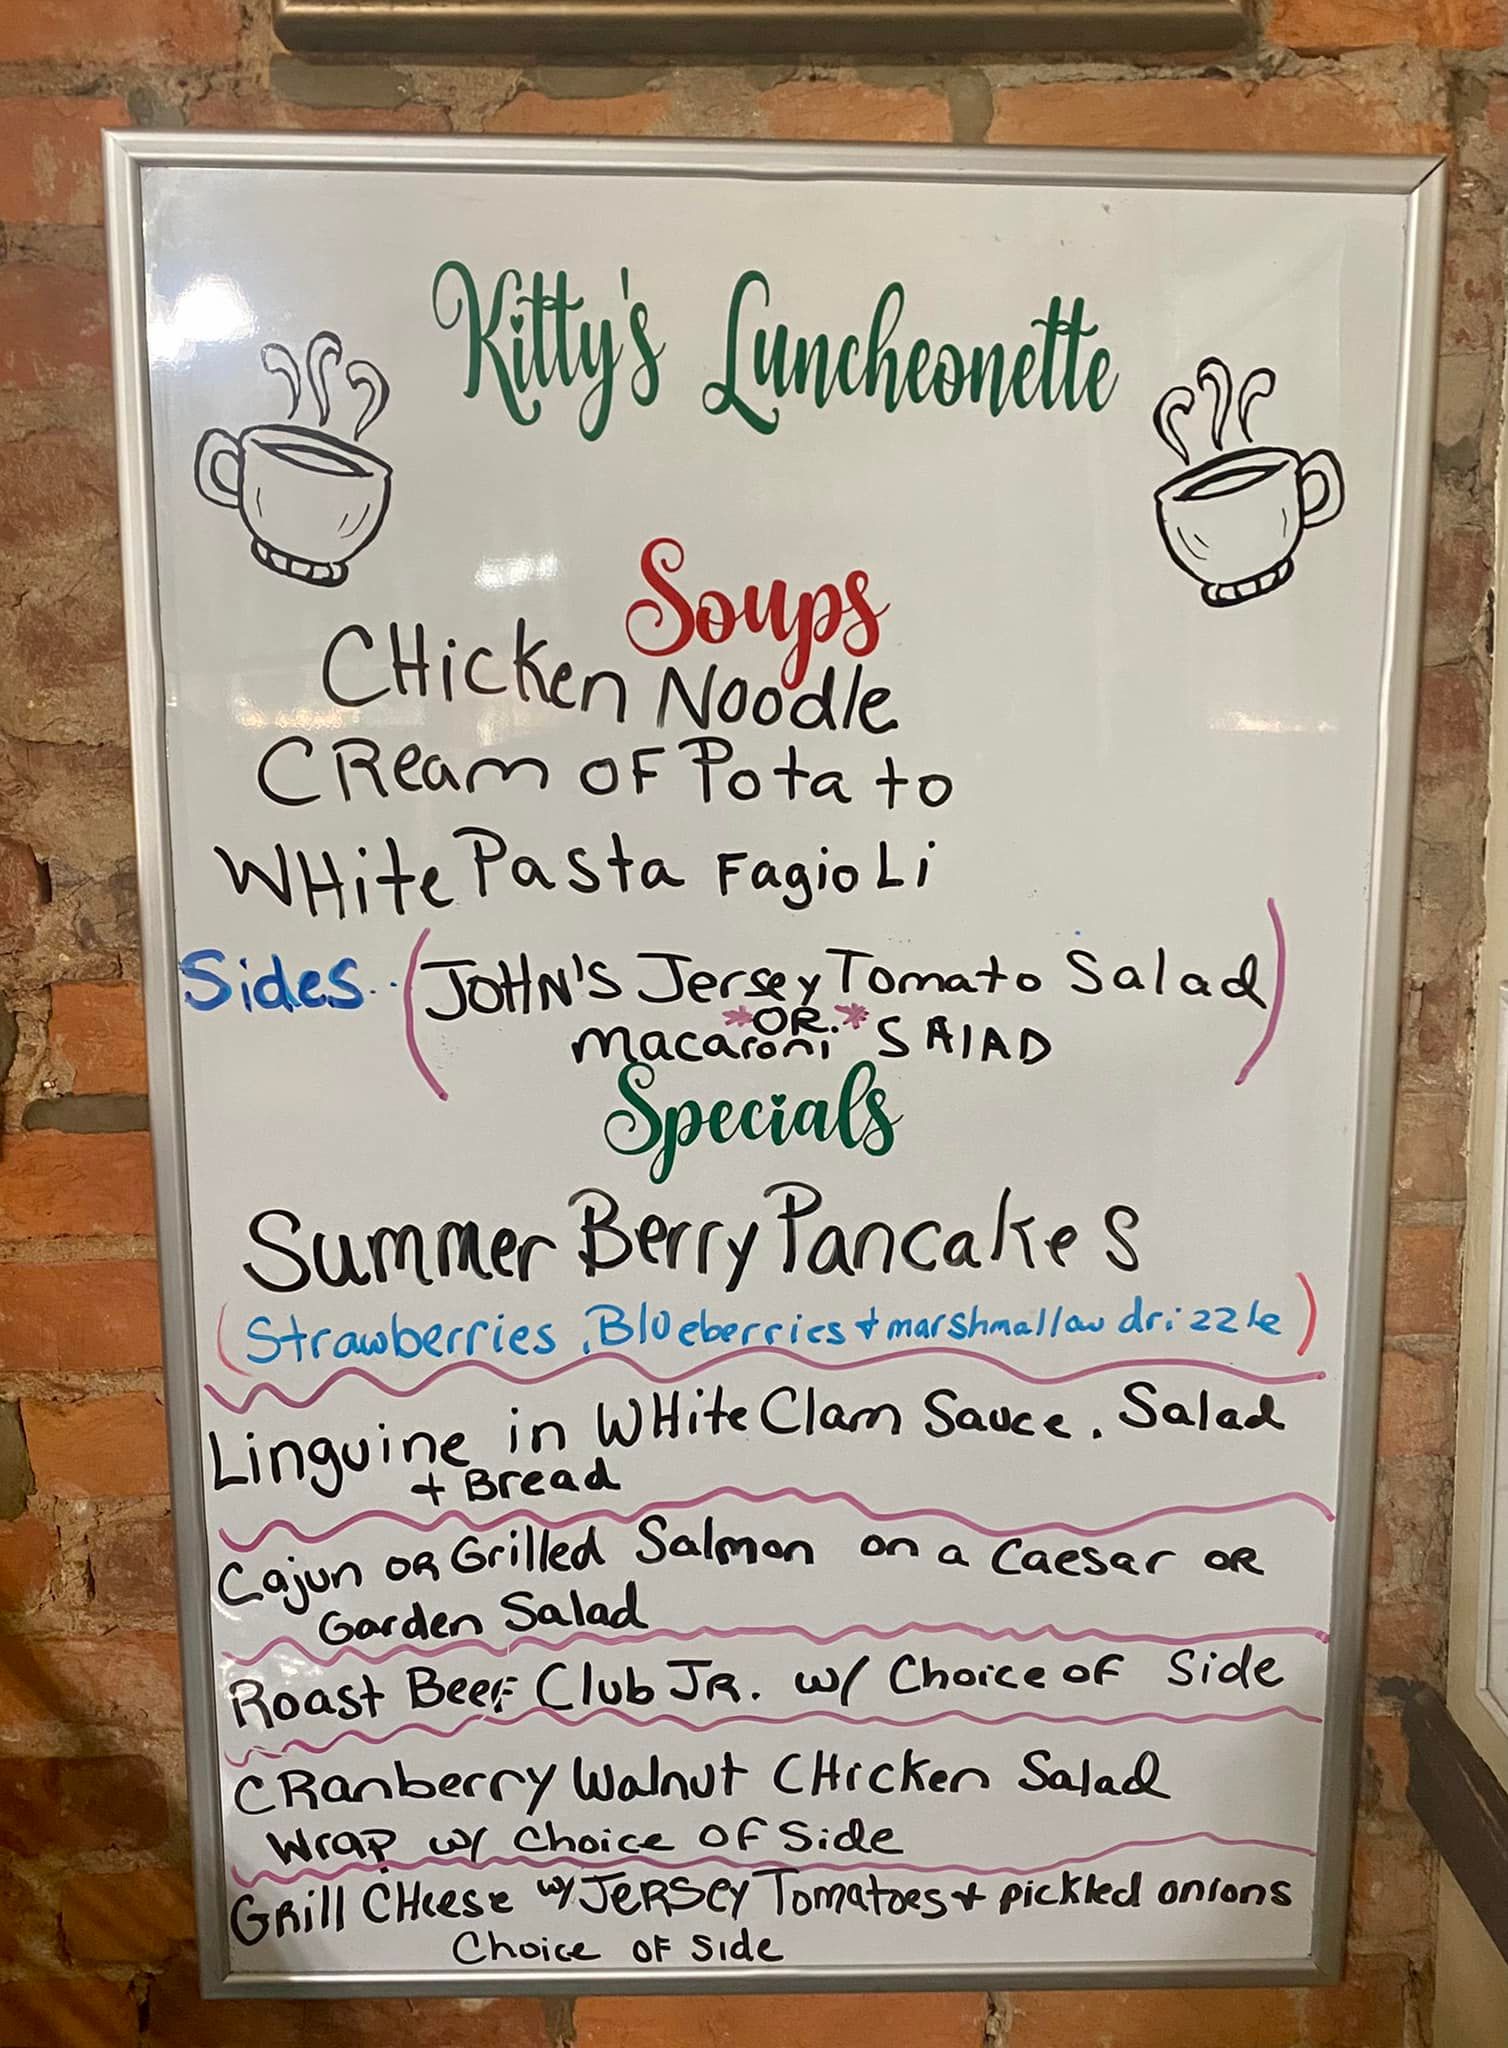 Kitty's Luncheonette
Soups
CHicken Noodle
CReam OF Potato
WHite Pasta FagioLi
Sides.. (JOHN'S Jersey Tomato Salad)
*OR.*
macaroni SAlAD
Specials
Summer Berry Pancakes
(Strawberries, Blueberries + marshmallow drizzle)
Linguine in WHite Clam Sauce. Salad
+ Bread
Cajun OR Grilled Salmon on a Caesar OR
Garden Salad
Roast BeeF Club JR. w/ Choice OF Side
CRanberry Walnut CHicken Salad
Wrap w/ Choice OF Side
GRill CHeese w/ JeRSEY Tomatoes + pickled onions
Choice OF Side